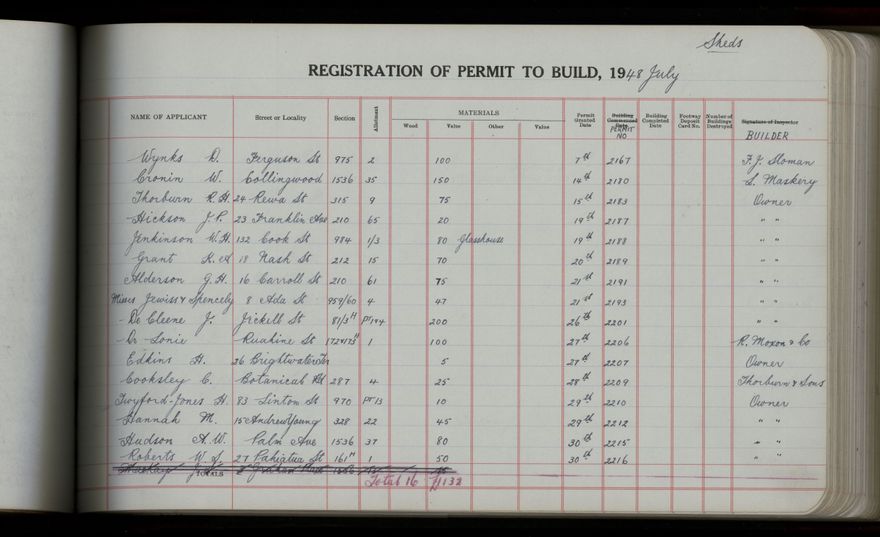 Sheds
REGISTRATION OF PERMIT TO BUILD, 1948 July
NAME OF APPLICANT Street or Locality Section Allotment MATERIALS Wood Value Other Value Permit Granted Date Building Commenced Date PERMIT NO Building Completed Date Footway Deposit Card No. Number of Buildings Destroyed Signature of Inspector BUILDER
Wynks D. Ferguson St 975 2 100 7th 2167 F. J. Sloman
Cronin W. Collingwood 1536 35 150 14th 2180 L. Maskery
Thorburn R. H. 24 Rewa St 315 9 75 15th 2183 Owner
Hickson J. P. 23 Franklin Ave 210 65 20 19th 2187 " "
Jenkinson W. H. 132 Cook St 984 1/3 80 Glasshouse 19th 2188 " "
Grant R. A 18 Nash St 212 15 70 20th 2189 " "
Alderson G. H. 16 Carroll St 210 61 75 21st 2191 " "
Misses Jewiss & Spencely 8 Ada St 959/60 4 47 21st 2193 " "
De Cleene J. Jickell St 81/3H pt 194 200 26th 2201 " "
Dr Lonie Ruahine St 172 & 173H 1 100 27th 2206 R. Moxon & Co
Edkins H. 26 Brightwater Ter 5 27th 2207 Owner
Cooksley C. Botanical Rd 287 4 25 28th 2209 Thorburn & Sons
Twyford-Jones H. 83 Linton St 970 PT 13 10 29th 2210 Owner
Hannah M. 15 Andrew Young 328 22 45 29th 2212 " "
Hudson A. W. Palm Ave 1536 37 80 30th 2215 " "
Roberts W. J. 27 Pahiatua St 161H 1 50 30th 2216 " "
TOTALS
Total 16 £1132